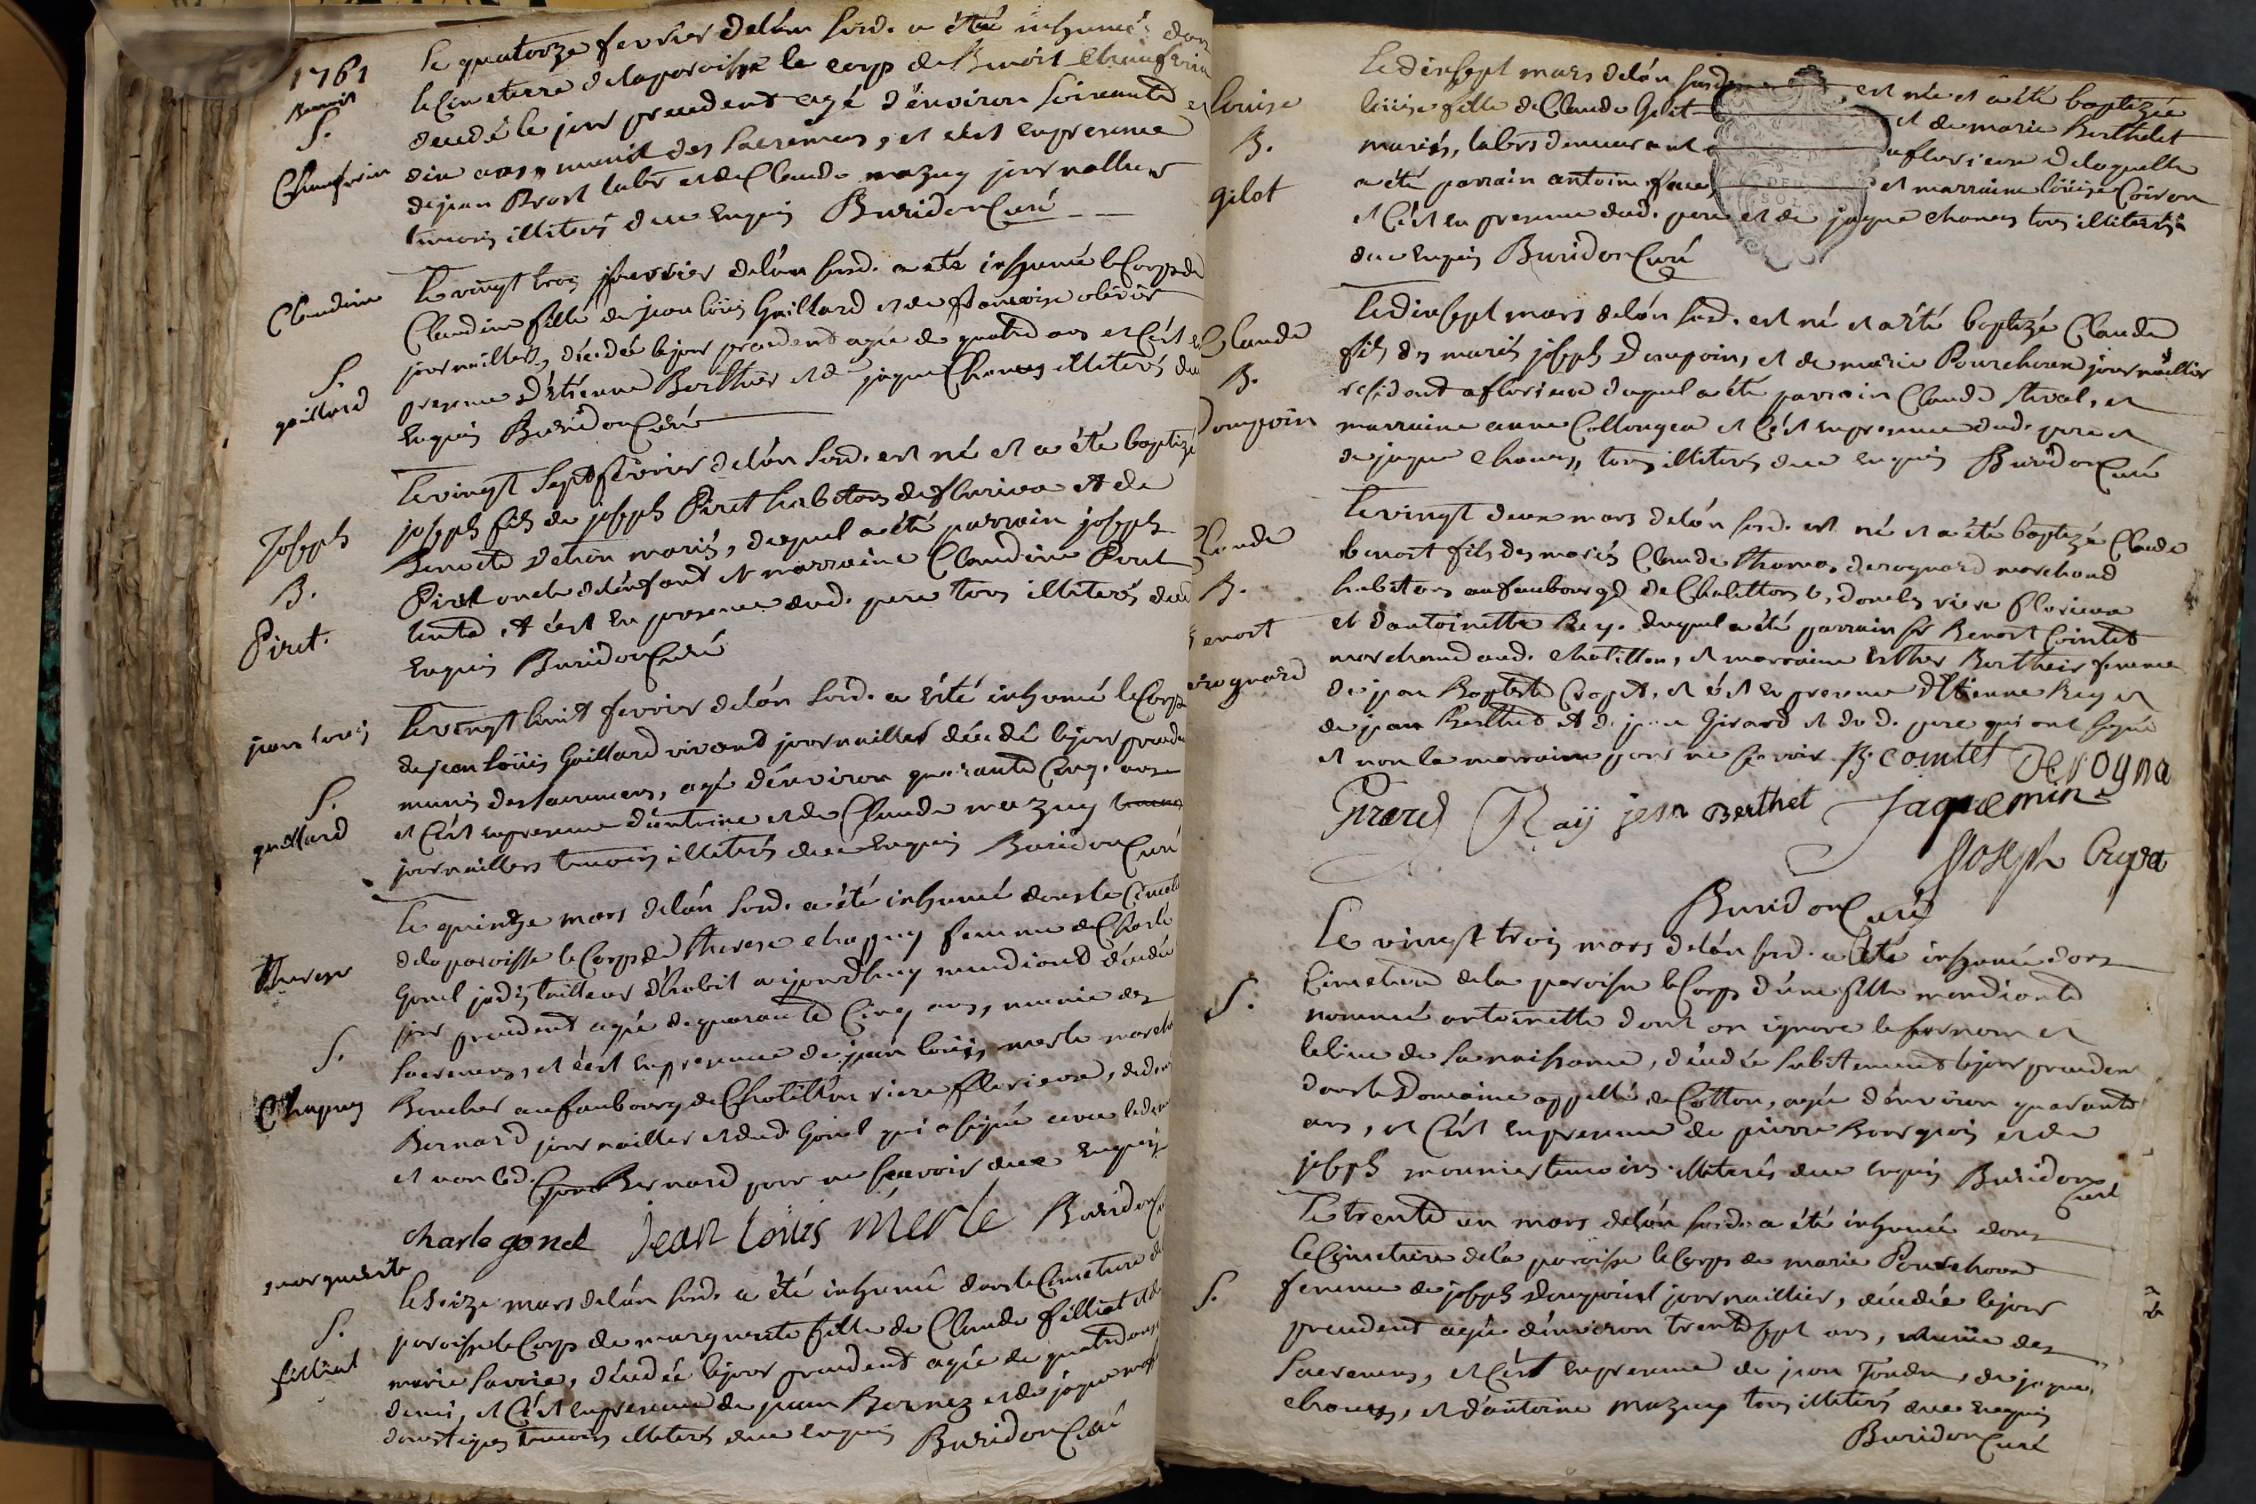 1761
Benoit
S.
Chanferin
Le quatorze fevrier delân susd. a été inhumé dans
le Cimetierre delaparoisse le corp de Benoit Chanferin
decedé le jour precedent agé d'environ soixante et
dix ans, munit des sacremens, et c'est enpresence
de jean Brost labr et de Claude mazuy journallier
temoins illiterés de ce enquis Buridon Curé
Claudine
S.
gaillard
Le vingt trois fevrier delân susd. a été inhumé le Corps de
Claudine fille de jean loüis Gaillard et de francoise olivier
journailliers, décédée lejour precedent agée de quatre ans et C'est en
presence d'Etienne Berthier et de jaque Chanus illiterés de ce
enquis Buridon Curé
Joseph
B.
Piret.
Le vingt sept fevrier delân susd. est né et a été baptizé
joseph fils de joseph Piret habitans de flurieux et de
Benoite Detion mariés, duquel a été parrain joseph
Piret oncle delénfant et marraine Claudine Piret
tante, et c'est en presence dud. pere tous illiterés de ce
enquis Buridon Curé
jean louis
S.
gaillard
Le vingt huit fevrier delân susd. a été inhumé le Corps
de jean Loüis Gaillard vivant journaillier décédé lejour precedent
munis des sacremens, agé d'énviron quarante Cinq. ans
et C'est enpresence d'antoine et de Claude mazuy
journailliers temoins illiterés de ce enquis Buridon Curé
Therese
S.
Chapuy
Le quintze mars delân susd. a été inhumé dans le Cimetiere
dela paroisse le Corps de Therese chapuy femme de Charle
Gonel jadis tailleur d'habit aujourdhuy mendiant décédée
jour precedent agée de quarante Cinq ans, munie des
sacremens, et c'est enpresence de jean loüis merle march
Boucher au faubourg de Chatillon riere flurieux, de
Bernard journaillier et dud. Gonel qui a signé avec led.
et non led. Bernard pour ne sçavoir de ce enquis
charle gonel Jean Louis Merle Buridon Curé
marguerite
S.
filliat
Le seize mars delân susd. a été inhumé dans le Cimetiere de
paroisse le Corps de marguerite fille de Claude filliat et de
marie Savoie, décédée lejour precedent agée de quatre ans
demi, et C'est enpresence de jean Bernez et de jaque
domestiques temoins illiterés de ce enquis Buridon Curé
Louise
B.
gilot
Le dixsept mars delân susd. est née et a été baptizée
loüise fille de Claude Gilot et de marie Berthelet
mariés, labrs demeurant a flurieux de laquelle
a été parrain antoine et marraine loüise Coiron
et C'est en presence dud. pere et de jaque chanus tous illiterés
de ce enquis Buridon Curé
DEUX
SOLS
Claude
B.
Dompoin
Le dixsept mars delân susd. est né et a été baptizé Claude
fils des mariés joseph Dompoin, et de marie Pourchoux journaillier
residant a flurieux duquel a été parrain Claude Revol, et
marraine anne Collonges et C'est enpresence dud. pere et
de jaque chanus, tous illiterés de ce enquis Buridon Curé
Claude
B.
Benoit
derognard
Le vingt deux mars delân susd. est né et a été baptizé Claude
benoit fils des mariés Claude thomas derognard marchand
habitans au faubourgs de Chatillon les doubs riere flurieux
et d'antoinette Rey. duquel a été parrain sr Benoit Cointet
marchand aud. chatillon, et marraine Esther Bertheir femme
de jean Baptiste Crozet, et c'est en presence d'Etienne Rey et
de jean Berthet et de jean Girard et dud. pere qui ont signé
et non la marraine pour ne sçavoir B. comtet Derogna
Girard Raij jean Berthet Jaquemin
Joseph
Buridon Curé
S.
Le vingt trois mars delân susd. a été inhumé dans
Cimetiere dela paroisse le Corps d'une fille mendiante
nommée antoinette dont on ignore le surnom et
lelieu de sa naissance, décédée subitement lejour precedent
dans le Domaine appellé de Cotton, agée d'énviron quarante
ans, et C'est enpresence de pierre Bourgeois et de
joseph mounier temoins illiterés de ce enquis Buridon
Curé
S.
Le trente un mars delân susd. a été inhumé dans
le Cimetiere dela paroisse le Corps de marie Pourchoux
femme de joseph Dompoint journaillier, décédée lejour
precedent agée d'énviron trente sept ans, munie des
sacremens, et C'est enpresence de jean Tondu, de jaque
chanus, et d'antoine mazuy tous illiterés de ce enquis
Buridon Curé